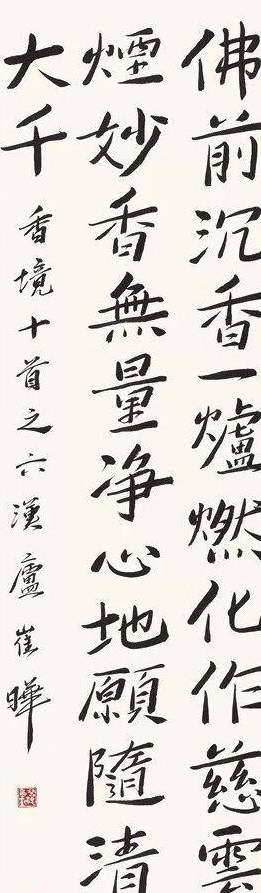 佛前沉香一爐燃化作慈雲
煙妙香無量净心地願隨清
大千
香境十首之六漢廬崔曄